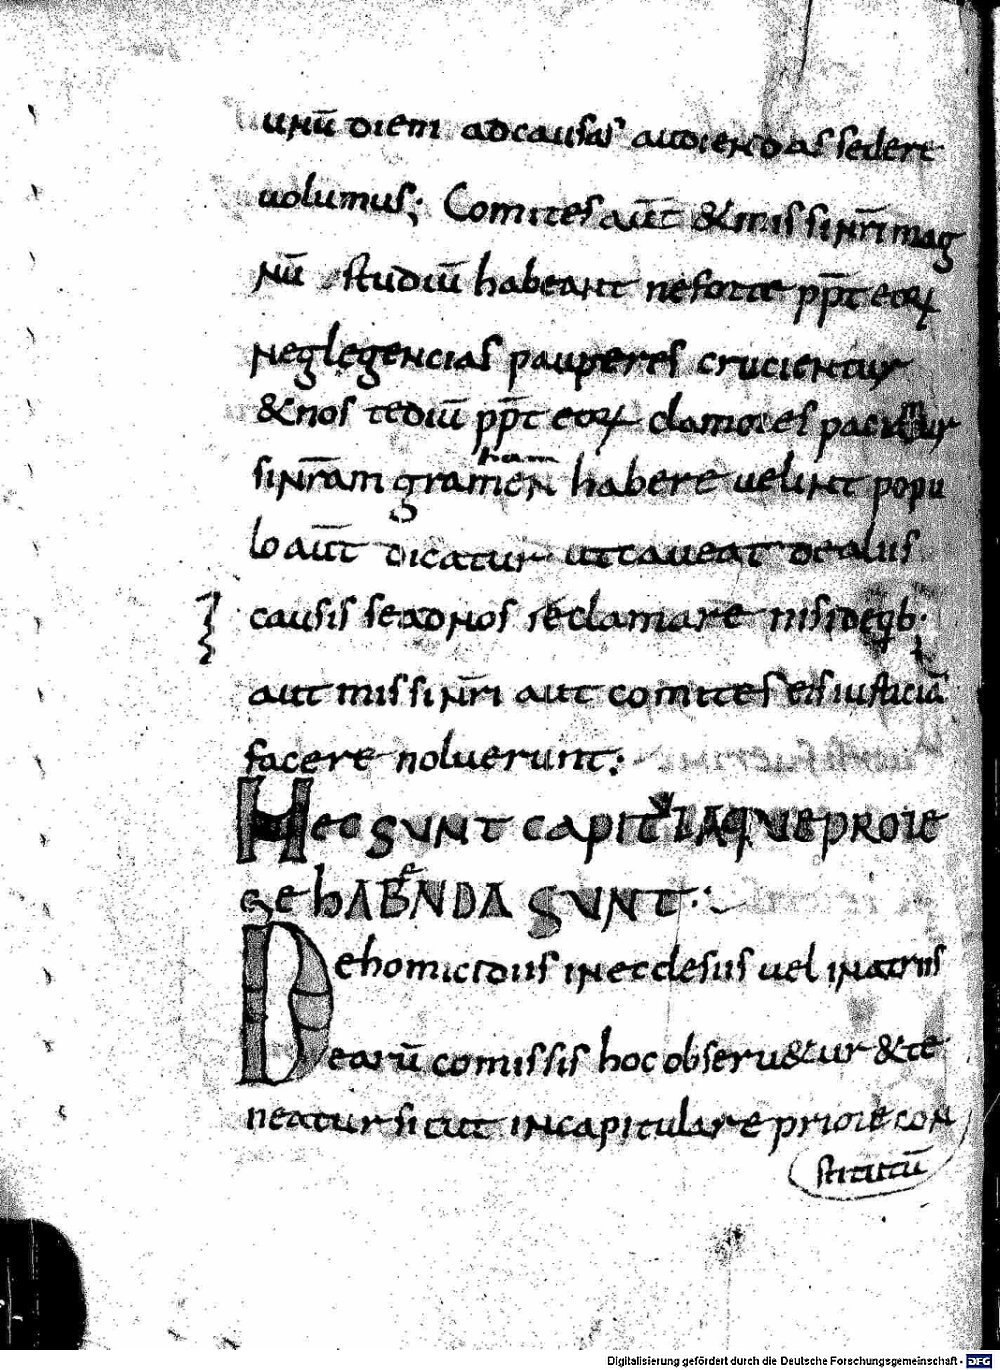 unū diem adcausas audiendas sedere
uolumus; Comites aūt &missi nr̄i mag
nū studiū habeant neforte pp̄t eoꝝ
neglegencias pauperes crucientur
&nos tediū pp̄t eoꝝ clamores paciamur
sinr̄am gramen̄ habere uelint popu
ham
lo aūt dicatur utcaueat dealiis
causis seadnos reclamare nisideqb·
aut missi nr̄i aut comites eis iusticiā
facere noluerunt;
Hec sunt capitula que pro le
ge habenda sunt:
De homicidiis in ecclesiis uel in atriis
earū comissis hoc obseru&ur &te
neatur sicut in capitulare priore con
stitutū
Digitalisierung gefördert durch die Deutsche Forschungsgemeinschaft - DFG